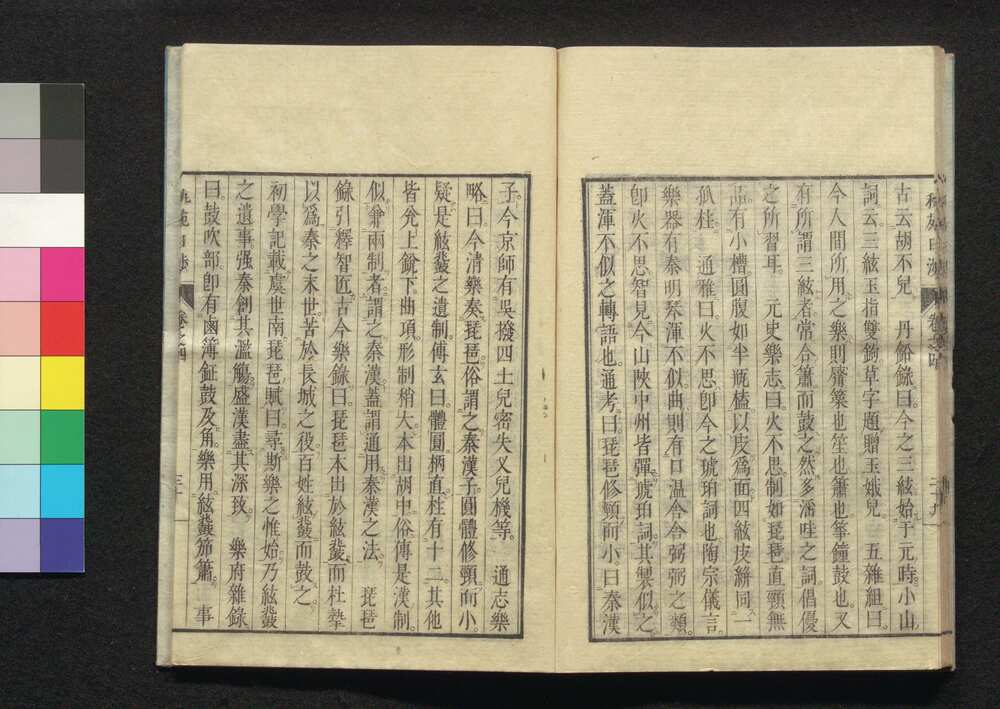 古云胡不兒　丹鉛錄曰。今之三絃始于元時。小山
詞云三絃玉指雙鉤草字題贈玉娥兒　五雜組曰。
今人間所用之樂則觱篥也笙也簫也箏鐘鼓也。又
有所謂三絃者常合簫而鼓之。然多淫哇之詞倡優
之所習耳。　元史樂志曰火不思制如琵琶直頸無
品。有小槽圓腹如半瓶榼以皮爲面四絃皮絣同一
孤柱。　通雅曰。火不思卽今之琥珀詞也陶宗儀言。
樂器有秦明琴渾不似。曲則有口溫合合弼弼之類。
卽火不思智見今山陝中州皆彈琥珀詞。其製似之
蓋渾不似之轉語也。通考。曰。琵琶修頸而小。曰秦漢
子。今京師有吳撥四土兒密失又兒機等。　通志樂
略曰。今清樂奏琵琶。俗謂之秦漢子。圓體修頸而小。
疑是絃鼗之遺制。傅玄曰。體圓柄直。柱有十二。其他
皆兌上銳下。曲項。形制稍大。本出胡中。俗傳是漢制。
似兼兩制者。謂之秦漢。蓋謂通用秦漢之法。　琵琶
錄引釋智匠古今樂錄曰。琵琶本出於絃鼗。而杜摯
以爲秦之末世。苦於長城之役百姓絃鼗而鼓之。
初學記載虞世南琵琶賦曰。尋斯樂之惟始。乃絃鼗
之遺事。强秦創其濫觴。盛漢盡其深致。　樂府雜錄
曰鼓吹部卽有鹵簿鉦鼓及角。樂用絃鼗笳簫。　事
卷之四
三十